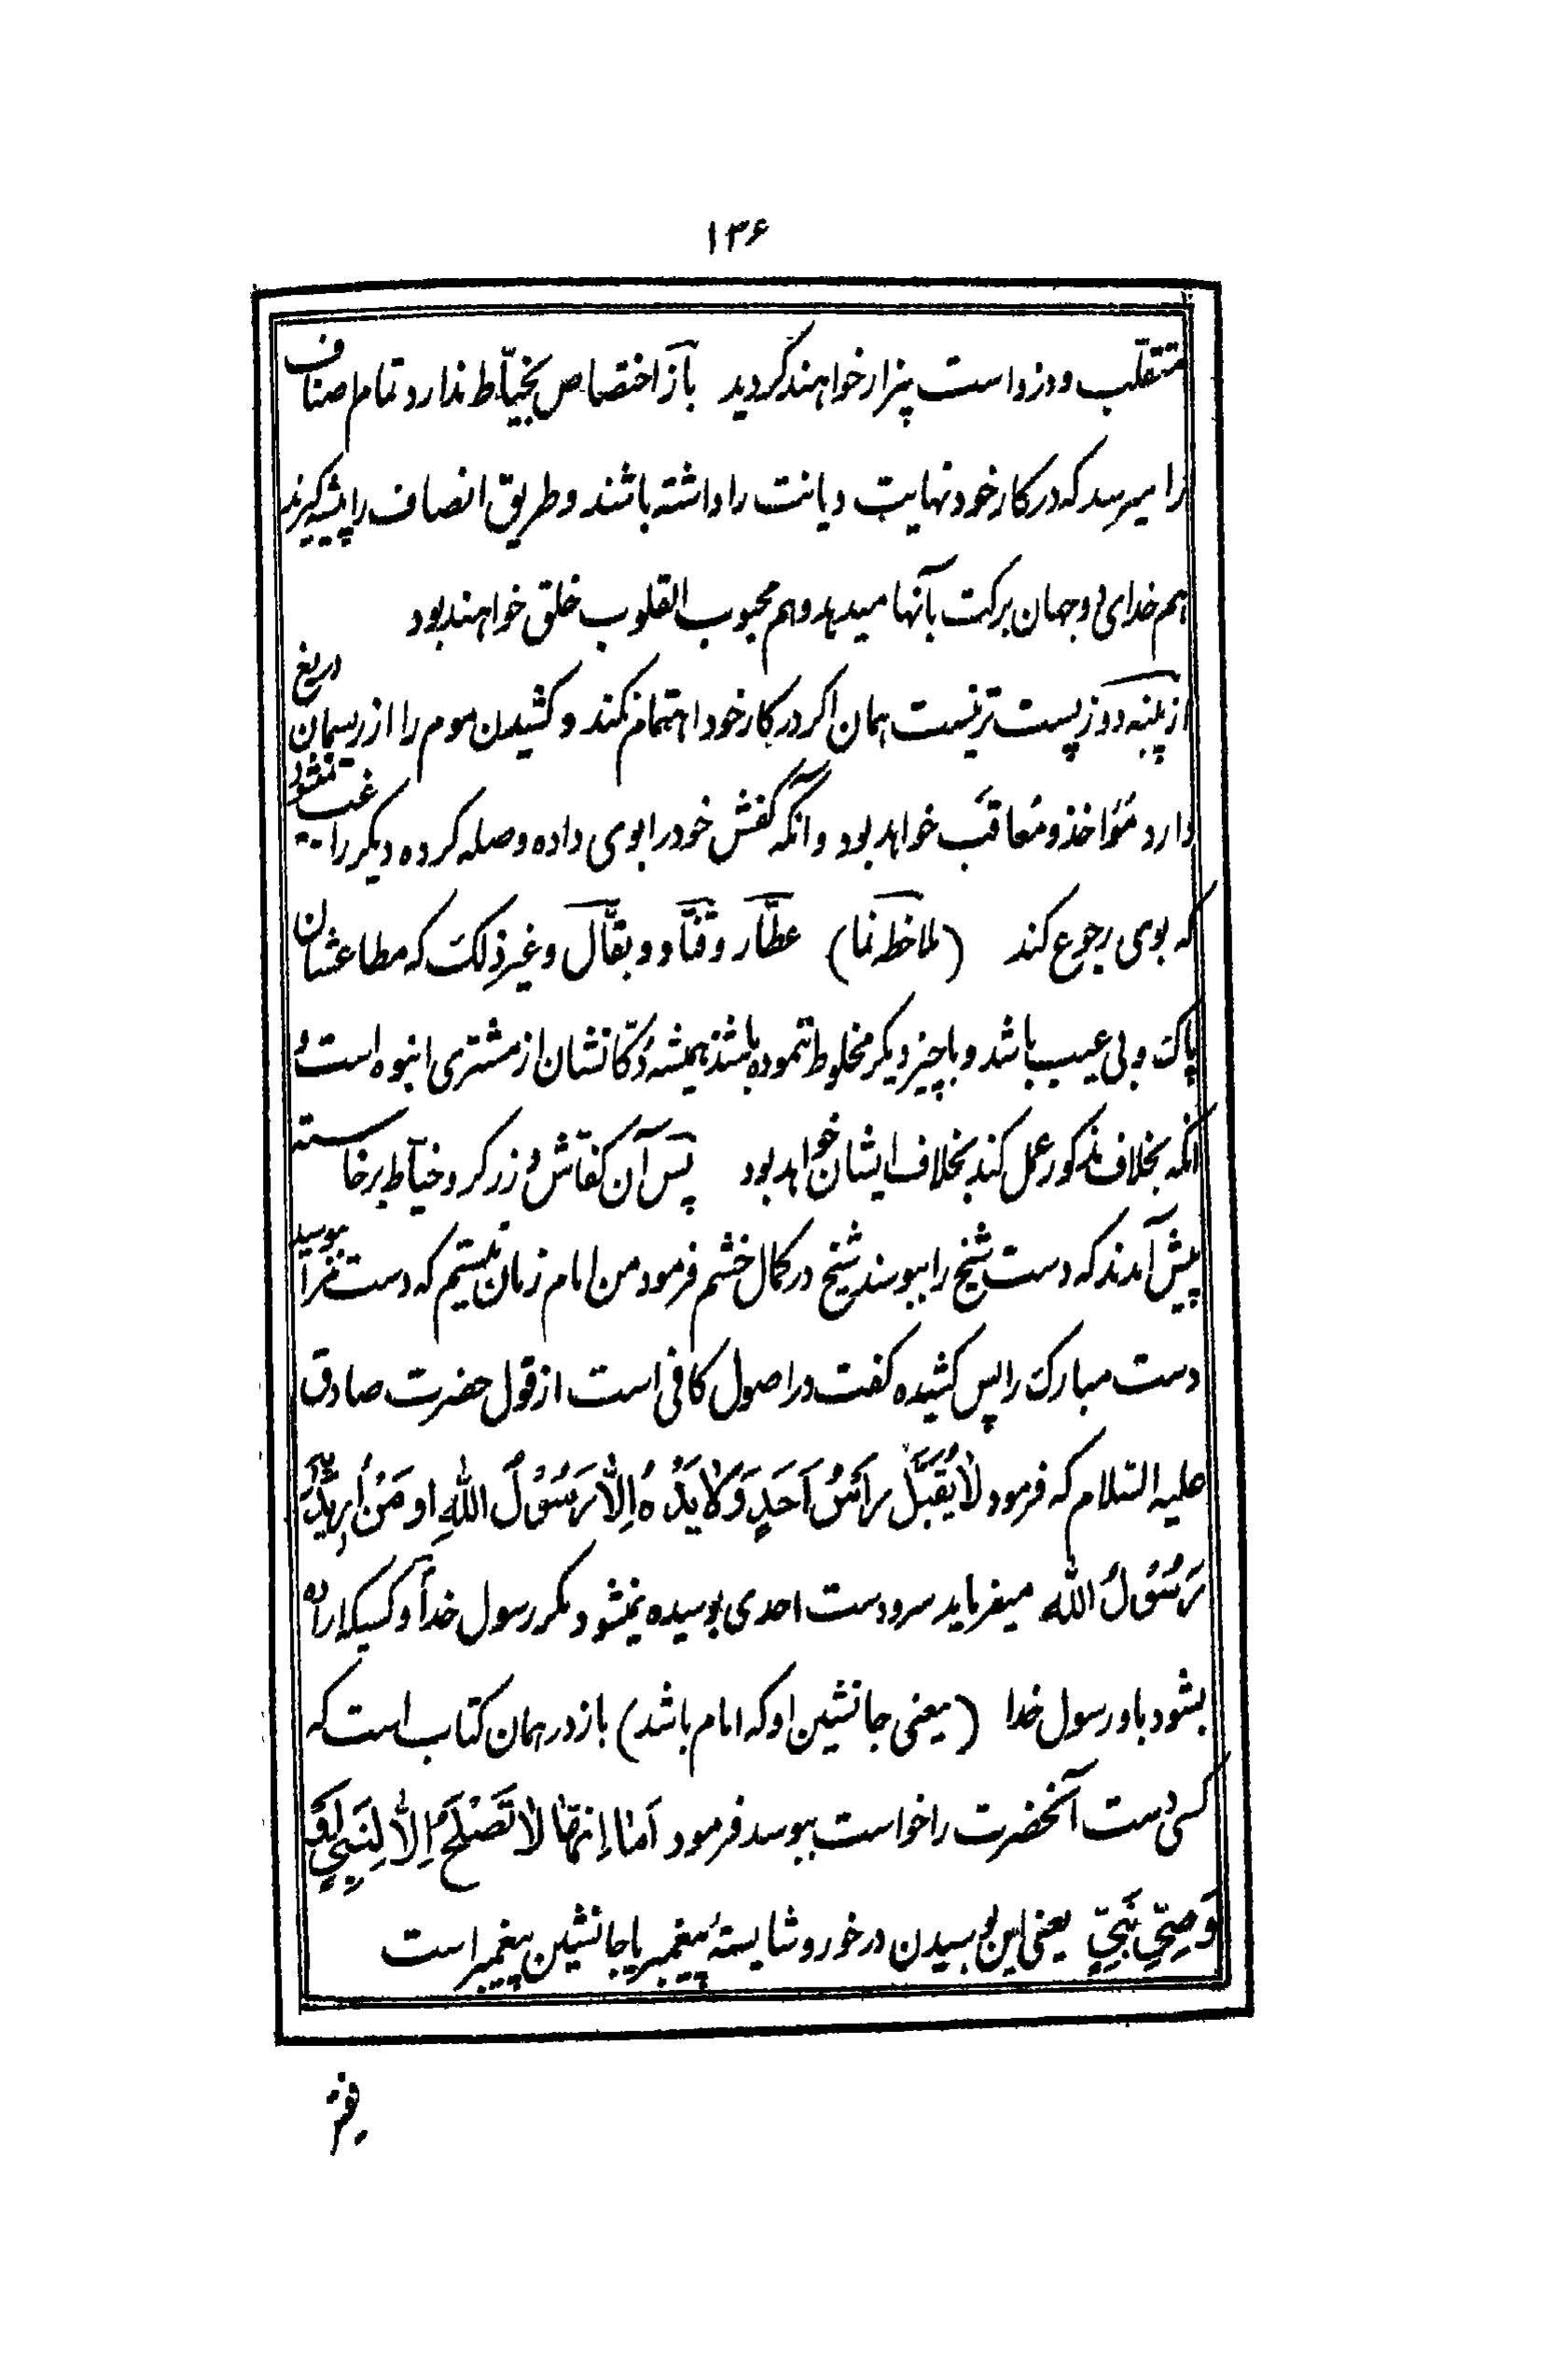 ۱۳۶
متقلّب و دزد است بیزار خواهند گردید باز اختصاص بخیّاط ندارد تمام اصناف
را میرسد که در کار خود نهایت دیانت را داشته باشند و طریق انصاف را پیشه گیرند
هم خدای دو جهان برکت بآنها میدهد و هم محبوب القلوب خلق خواهند بود
از پینه دوز پست تر نیست همان اگر در کار خود اهتمام نکند و کشیدن موم را از ریسمان دریغ
دارد مؤاخذ و مُعاقَب خواهد بود و آنگه کفش خود را بوی داده وصله کرده دیگر راغب نمیشود
که بوی رجوع کند (ملاحظه نما) عطّار و قنّاد و بقّال و غیر ذلک که مطاعشان
پاک و بی عیب باشد و با چیز دیگر مخلوط ننموده باشند همیشه دکّانشان از مشتری انبوه است و
آنکه بخلاف مذکور عمل کند بخلاف ایشان خواهد بود پس آن کفّاش و زرگر و خیّاط برخاسته
پیش آمدند که دست شیخ را ببوسند شیخ در کمال خشم فرمود من امام زمان نیستم که دست مرا ببوسید
دست مبارک را پس کشیده گفت در اصول کافی است از قول حضرت صادق
علیه السّلام که فرمود لا یُقَبَّل رَأسُ اَحَدٍ وَ لا یَدُهُ اِلّا رَسُوْلُ اللهِ او مَنْ اُرِیْدَ بِهِ
رَسُوْلُ الله میفرماید سر و دست احدی بوسیده نمیشود مگر رسول خدا و کسیکه اراده
بشود باو رسول خدا (یعنی جانشین او که امام باشد) باز در همان کتاب است که
کسی دست آنحضرت را خواست ببوسد فرمود اَما اِنّها لا تَصْلُحُ اِلّا لِنَبِیٍّ اَوْ
وَصِیِّ نَبِیٍّ یعنی این بوسیدن در خور و شایستهٔ پیغمبر یا جانشین پیغمبر است